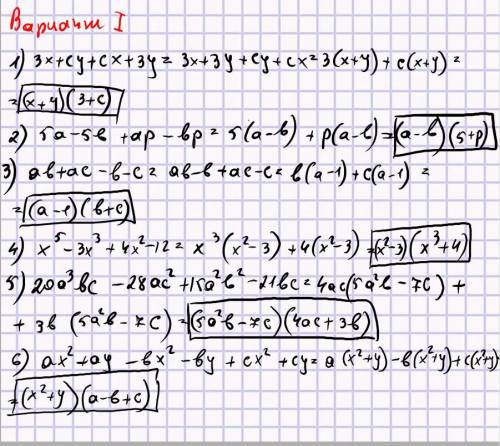 Вариант I
1) 3x+cy+cx+3y= 3x+3y+cy+cx=3(x+y)+c(x+y)=
=(x+y)(3+c)
2) 5a-5b+ap-bp=5(a-b)+p(a-b)=(a-b)(5+p)
3) ab+ac-b-c=ab-b+ac-c=b(a-1)+c(a-1)=
=(a-1)(b+c)
4) x⁵-3x³+4x²-12=x³(x²-3)+4(x²-3)=(x²-3)(x³+4)
5) 20a³bc-28ac²+15a²b²-21bc=4ac(5a²b-7c)+
+3b(5a²b-7c)=(5a²b-7c)(4ac+3b)
6) ax²+ay-bx²-by+cx²+cy=a(x²+y)-b(x²+y)+c(x²+y)
=(x²+y)(a-b+c)